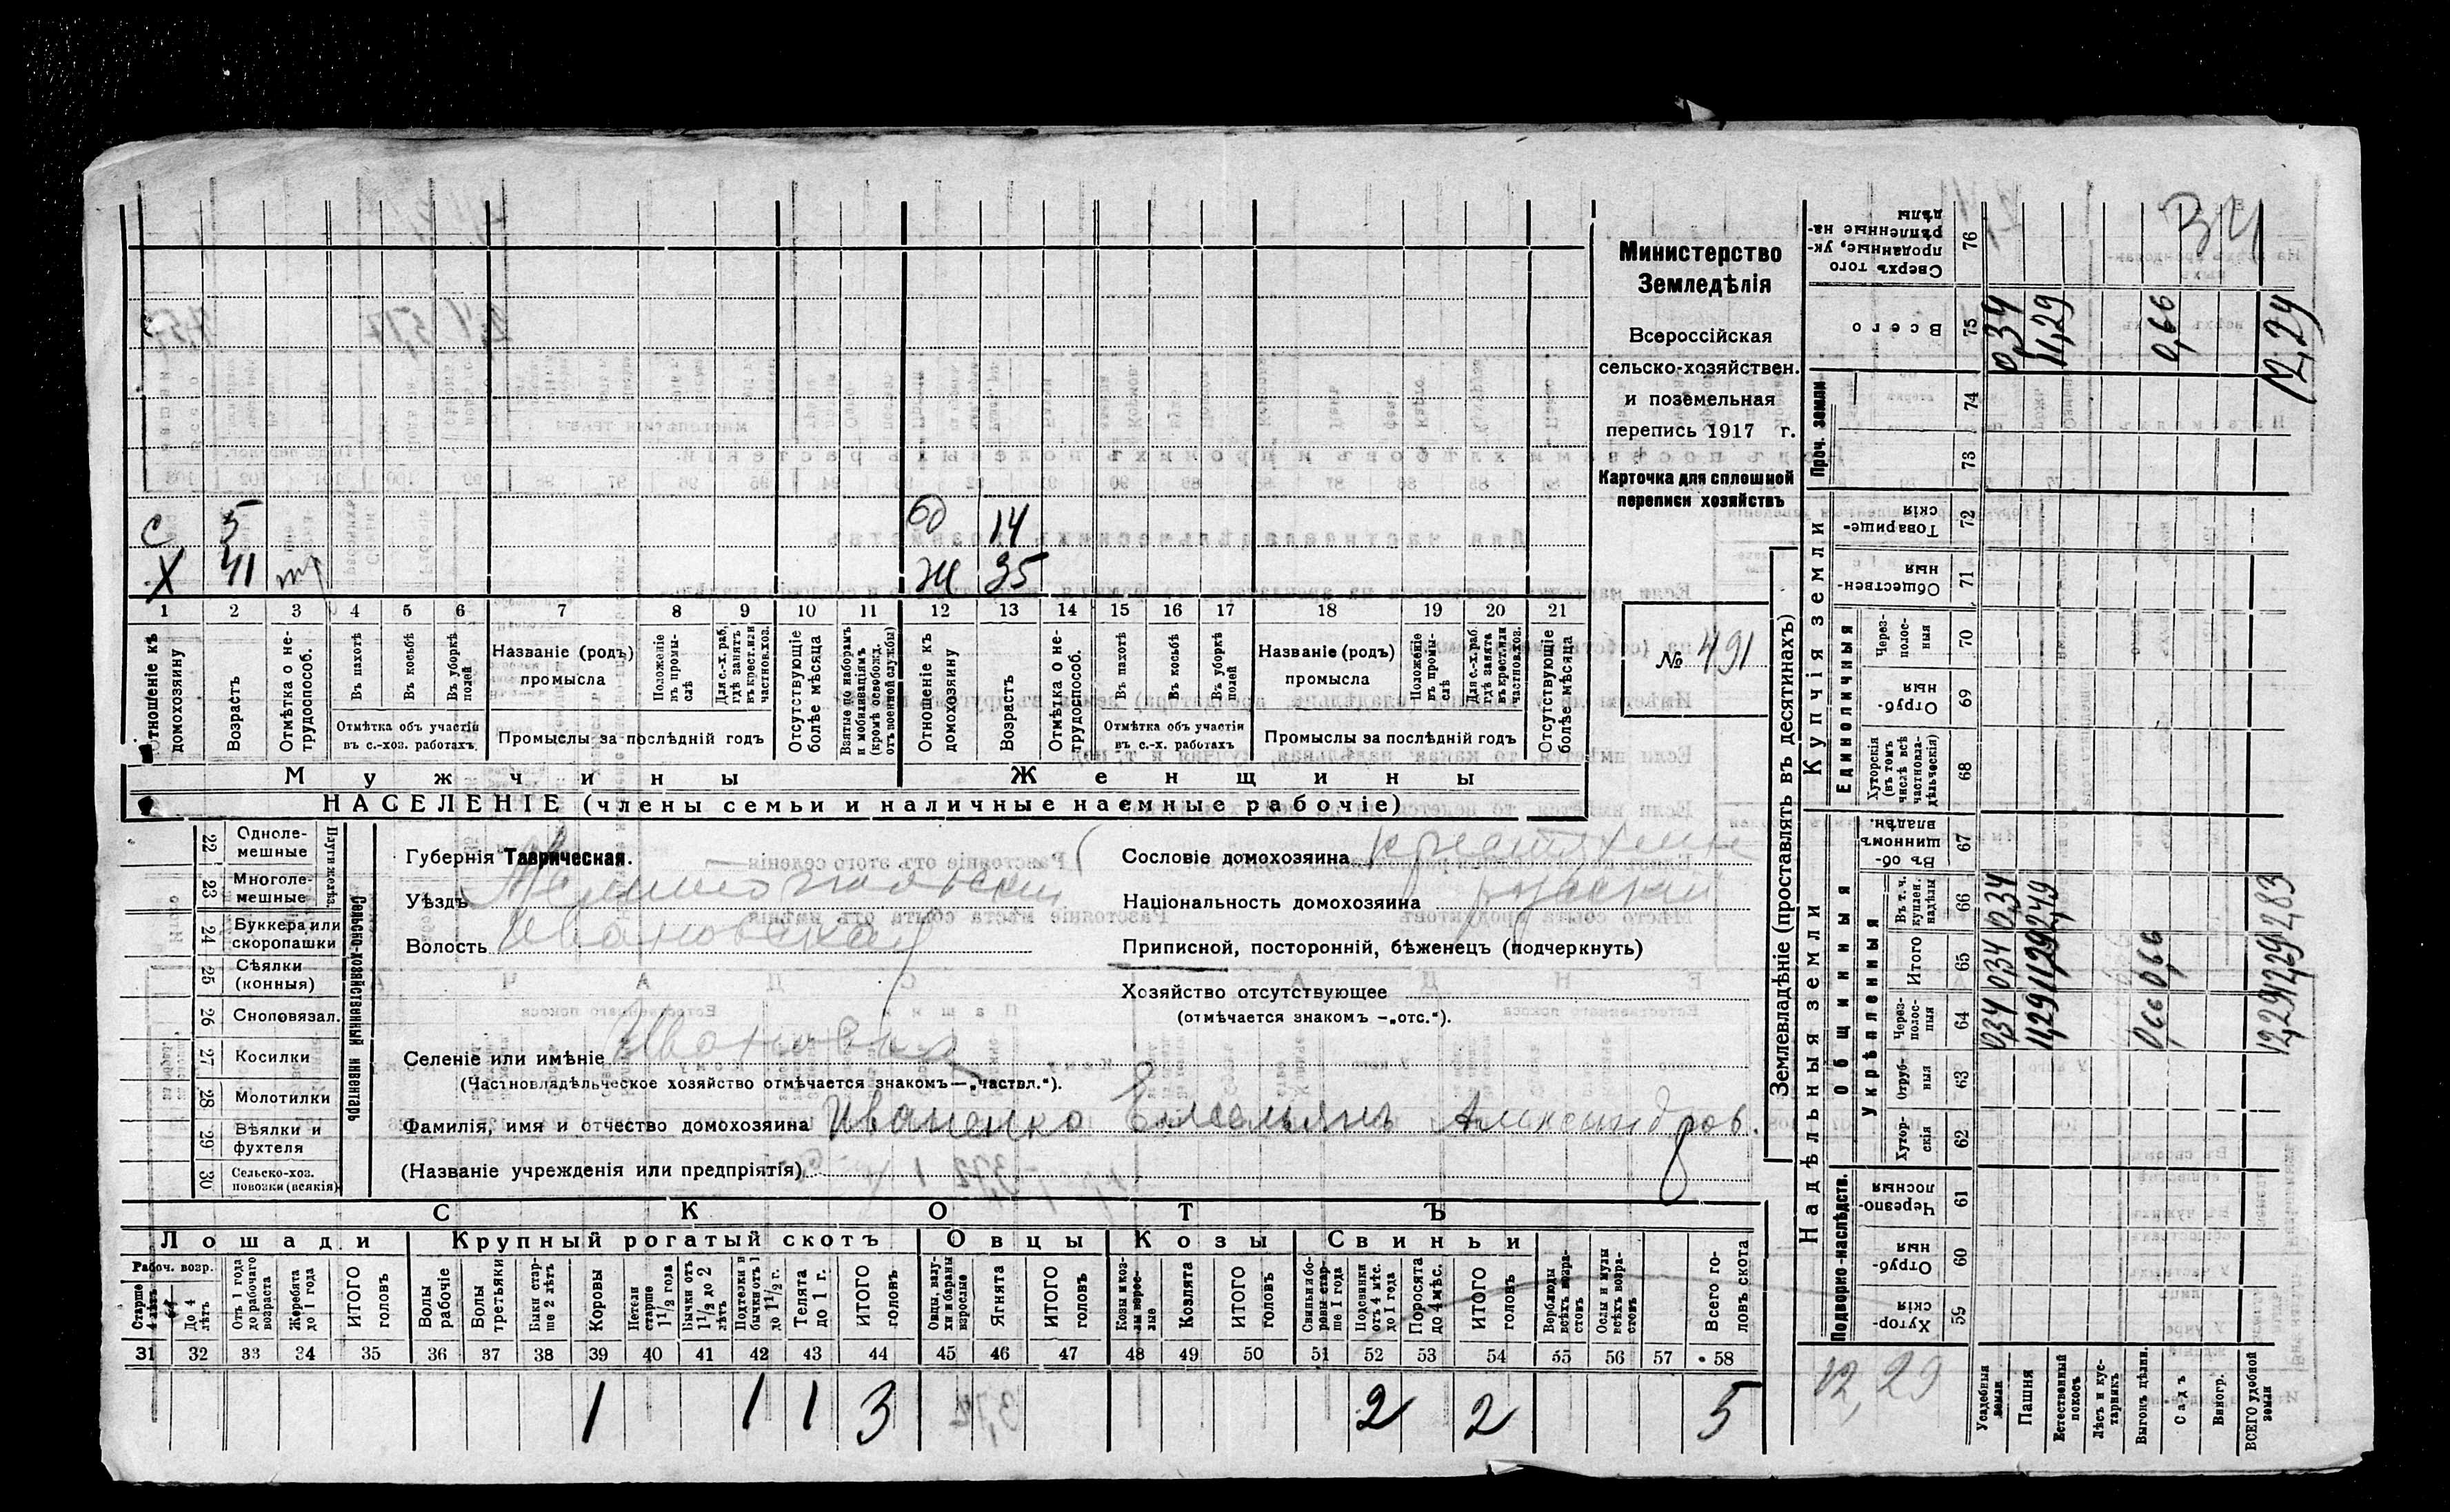 Министерство
Земледѣлія
Всероссійская
сельско-хозяйствен.
и поземельная
перепись 1917 г.
Карточка для сплошной
переписи хозяйствъ
№ 491
С 5 14
Х 41 Ж 35
1 2 3 4 5 6 7 8 9 10 11 12 13 14 15 16 17 18 19 20 21
Отношеніе къ домохозяину
Возрастъ
Отмѣтка о не-трудоспособ.
Въ пахотѣ
Въ косьбѣ
Въ уборкѣ полей
Отмѣтка объ участіи въ с.-хоз. работахъ.
Названіе (родъ) промысла
Положеніе въ промы-слѣ
Для с.-х. раб. гдѣ занятъ въ крест. или частнов. хоз.
Промыслы за послѣдній годъ
Отсутствующіе болѣе мѣсяца
Взятые по наборамъ и мобилизаціямъ (кромѣ освобожд. отъ военной службы)
Отношеніе къ домохозяину
Возрастъ
Отмѣтка о не-трудоспособ.
Въ пахотѣ
Въ косьбѣ
Въ уборкѣ полей
Отмѣтка объ участіи въ с.-х. работахъ
Названіе (родъ) промысла
Положеніе въ промы-слѣ
Для с.-х. раб. гдѣ занята въ крест. или частнов. хоз.
Промыслы за послѣдній годъ
Отсутствующіе болѣе мѣсяца
Мужчины Женщины
НАСЕЛЕНІЕ (члены семьи и наличные наемные рабочіе)
Сельско-хозяйственный инвентарь
Плуги желѣз.
22 Одноле-мешные
23 Многоле-мешные
24 Буккера или скоропашки
25 Сѣялки (конныя)
26 Сноповязал.
27 Косилки
28 Молотилки
29 Вѣялки и фухтеля
30 Сельско-хоз. повозки (всякія)
Губернія Таврическая.
Уѣздъ Мелитопольскій
Волость Ивановская
Селеніе или имѣніе Ивановка
(Частновладѣльческое хозяйство отмѣчается знакомъ—„частвл.“).
Фамилія, имя и отчество домохозяина Иваненко Емельянъ Александров.
(Названіе учрежденія или предпріятія)
Сословіе домохозяина крестьянин
Національность домохозяина русскій
Приписной, посторонній, бѣженецъ (подчеркнуть)
Хозяйство отсутствующее
(отмѣчается знакомъ -„отс.“).
СКОТЪ
Лошади Крупный рогатый скотъ Овцы Козы Свиньи
Рабоч. возр.
Старше 4 лѣтъ
До 4 лѣтъ
Отъ 1 года до рабочаго возраста
Жеребята до 1 года
ИТОГО головъ
Волы рабочіе
Волы третьяки
Быки стар-ше 2 лѣтъ
Коровы
Нетели старше 1 1/2 года
Бычки отъ 1 1/2 до 2 лѣтъ
Подтелки и бычки отъ 1 до 1 1/2 г.
Телята до 1 г.
ИТОГО головъ
Овцы, валу-хи и бараны взрослые
Ягнята
ИТОГО головъ
Козы и коз-лы взрос-лые
Козлята
ИТОГО головъ
Свиньи и бо-ровы стар-ше 1 года
Подсвинки отъ 4 мѣс. до 1 года
Поросята до 4 мѣс.
ИТОГО головъ
Верблюды всѣхъ возра-стовъ
Ослы и мулы всѣхъ возра-стовъ
Всего го-ловъ скота
31 32 33 34 35 36 37 38 39 40 41 42 43 44 45 46 47 48 49 50 51 52 53 54 55 56 57 58
1 1 1 3 2 2 5
Землевладѣніе (проставлять въ десятинахъ)
Надѣльныя земли Купчія земли Проч. земли
Подворно-наслѣдств. Общинныя Единоличныя
Укрѣпленныя
59 Хутор-скія
60 Отруб-ныя
61 Черезпо-лосныя
62 Хутор-скія
63 Отруб-ныя
64 Через-полос-ныя
65 Итого
66 Въ т. ч. куплен. надѣлы
67 Въ об-щинномъ владѣн.
68 Хуторскія (въ томъ числѣ всѣ частновла-дѣльческія)
69 Отруб-ныя
70 Через-полос-ныя
71 Обществен-ныя
72 Товарище-скія
73
74
75 Всего
76 Сверхъ того проданные, ук-рѣпленные на-дѣлы
Усадебныя земли 0,34 0,34 0,34 0,34
Пашня 11,29 11,29 2,49 11,29
Естественный покосъ
Лѣсъ и кус-тарникъ
Выгонъ цѣлин. 0,66 0,66 0,66
Садъ
Виногр.
ВСЕГО удобной земли 12,29 12,29 2,83 12,29
12,29